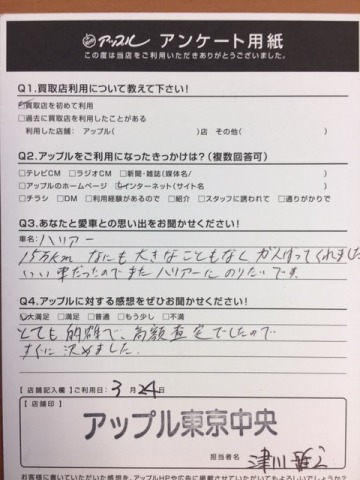 アップル アンケート用紙
この度は当店をご利用いただきありがとうございました。
Q1.買取店利用について教えて下さい!
☑買取店を初めて利用
□過去に買取店を利用したことがある
利用した店舗： アップル( )店 その他( )
Q2.アップルをご利用になったきっかけは?(複数回答可)
□テレビCM □ラジオCM □新聞・雑誌(媒体名/ )
□アップルのホームページ ☑インターネット(サイト名 )
□チラシ □DM □利用経験があるので □紹介 □スタッフに誘われて □通りがかりで
Q3.あなたと愛車との思い出をお聞かせください!
車名：ハリアー
15万km なにも大きなこともなく がんばってくれました
いい車だったので またハリアーにのりたいです。
Q4.アップルに対する感想をぜひお聞かせください!
☑大満足 □満足 □普通 □もう少し □不満
とても的確で、高額査定でしたので
すぐに決めました。
【店舗記入欄】ご利用日： 3月24日
【店舗印】
アップル東京中央
担当者名 津川
お客様に書いていただいた感想を、アップルHPや広告に掲載させていただいてもよろしいでしょうか?